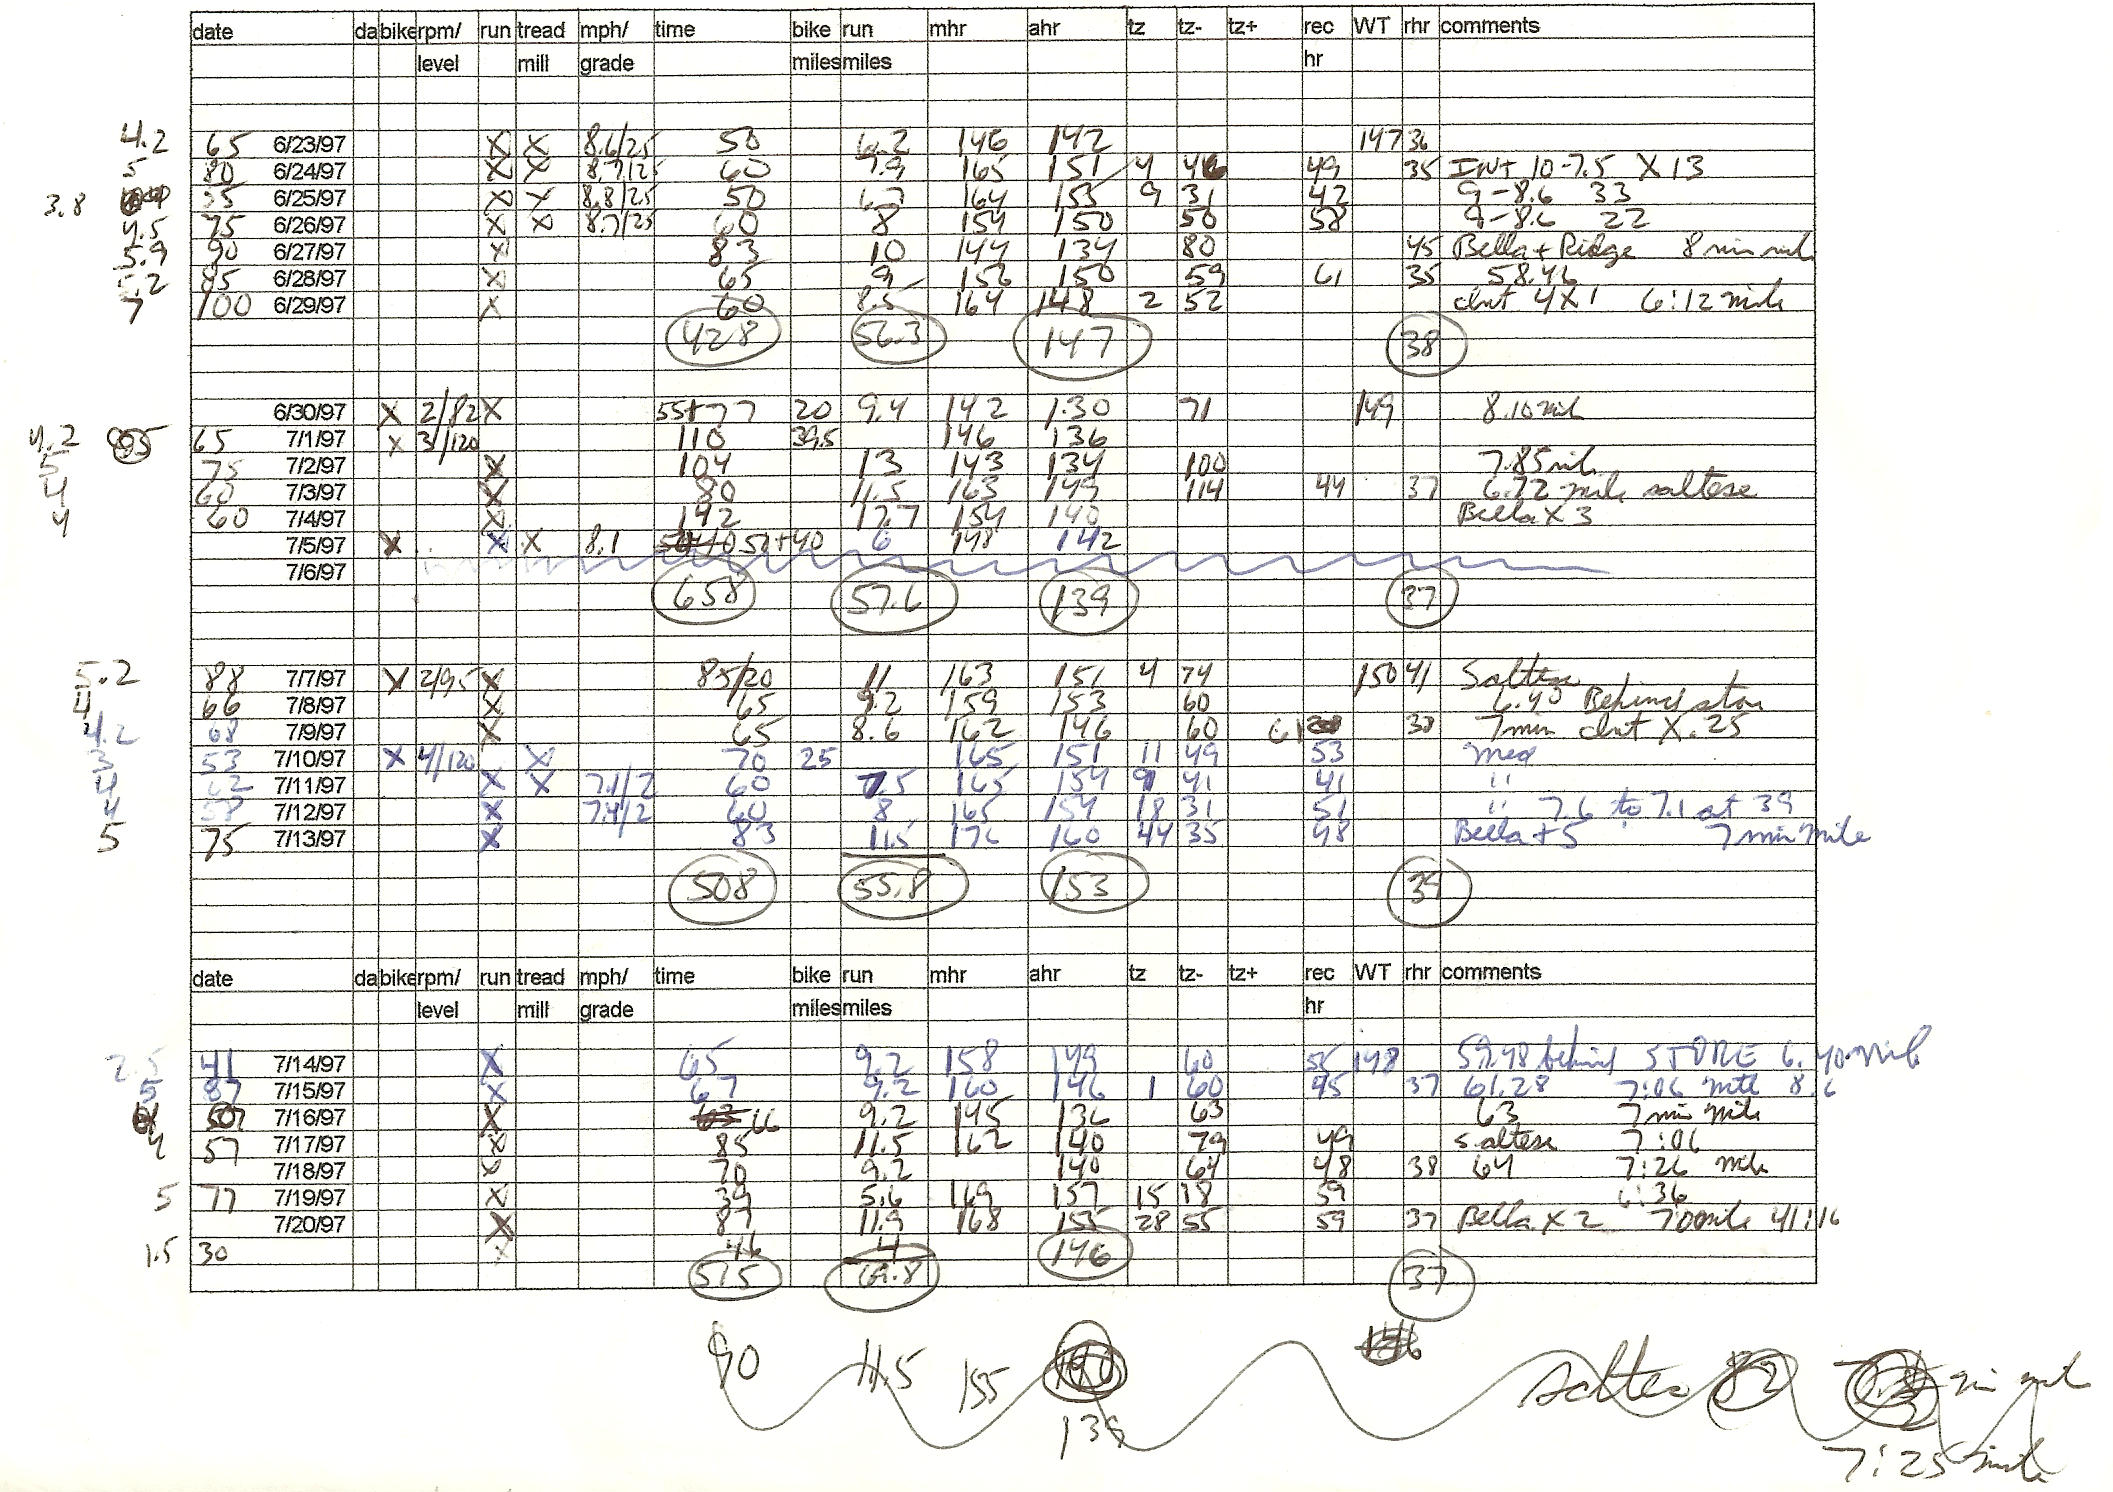 date da bike rpm/ run tread mph/ time bike run mhr ahr tz tz- tz+ rec WT rhr comments
level mill grade miles miles hr
4.2 65 6/23/97 X X 8.6/25 50 6.2 146 142 147 36
5 80 6/24/97 X X 8.7/25 60 7.9 165 151 4 49 35 INt 10-7.5 X 13
3.8 55 6/25/97 X X 8.8/25 50 6.7 164 155 9 31 42 9-8.6 33
4.5 75 6/26/97 X X 8.7/25 60 8 154 150 50 58 9-8.6 22
5.9 90 6/27/97 X 83 10 144 134 80 45 Bella + Ridge 8 min mile
5.2 85 6/28/97 X 65 9 156 150 59 61 35 58.46
7 100 6/29/97 X 60 8.5 164 148 2 52 Int 4X1 6:12 mile
428 56.3 147 38
6/30/97 X 2/82 X 55+77 20 9.4 142 130 71 149 8.10 mile
4.2 65 7/1/97 X 3/120 110 39.5 146 136
5 75 7/2/97 X 104 13 143 134 100 7.85 mile
4 60 7/3/97 X 80 11.5 163 149 114 44 37 6.72 mile saltese
4 60 7/4/97 X 142 17.7 154 140 Bella X 3
7/5/97 X X X 8.1 50+40 6 148 142
7/6/97
658 57.6 139 37
5.2 88 7/7/97 X 2/95 X 85/20 11 163 151 4 74 150 41 Saltese
4 66 7/8/97 X 65 9.2 159 153 60 6.40 Behind store
4.2 68 7/9/97 X 65 8.6 162 146 60 61 38 7 min Int X .25
3 53 7/10/97 X 4/120 X 70 25 165 151 11 49 53 Med
4 62 7/11/97 X X 7.1/2 60 7.5 165 154 9 41 41 "
4 58 7/12/97 X 7.4/2 60 8 165 154 18 31 51 " 7.6 to 7.1 at 39
5 75 7/13/97 X 83 11.5 176 160 44 35 48 Bella + 5 7 min mile
508 55.8 153 39
date da bike rpm/ run tread mph/ time bike run mhr ahr tz tz- tz+ rec WT rhr comments
level mill grade miles miles hr
2.5 41 7/14/97 X 65 9.2 158 149 60 55 148 59.48 behind STORE 6.40 mile
5 87 7/15/97 X 67 9.2 160 146 1 60 45 37 61.28 7:06 mile 8.6
7/16/97 X 66 9.2 145 136 63 63 7 min mile
4 57 7/17/97 X 85 11.5 162 140 79 49 saltese 7:06
7/18/97 X 70 9.2 140 64 48 38 64 7:26 mile
5 77 7/19/97 X 39 5.6 169 157 15 18 59 6:36
7/20/97 X 87 11.9 168 155 28 55 59 37 Bella X 2 700 mile 41:16
1.5 30 X 46 4 146
515 69.8 37
90 11.5 155 saltese 82 min mile
139 7:25 mile